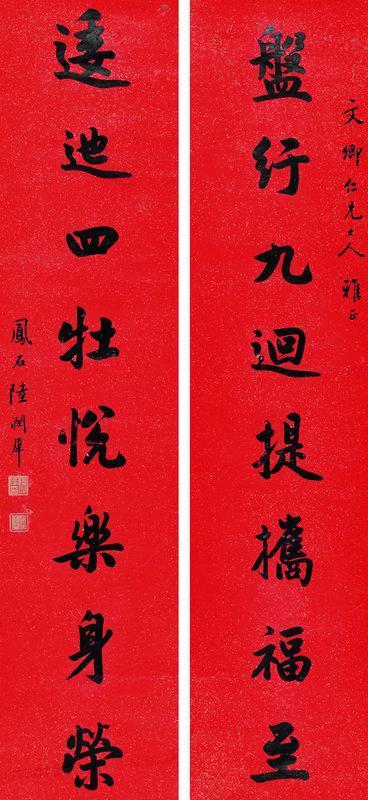 文卿仁兄大人雅正
盤行九迴提攜福至
逶迆四牡悅樂身榮
鳳石陸潤庠